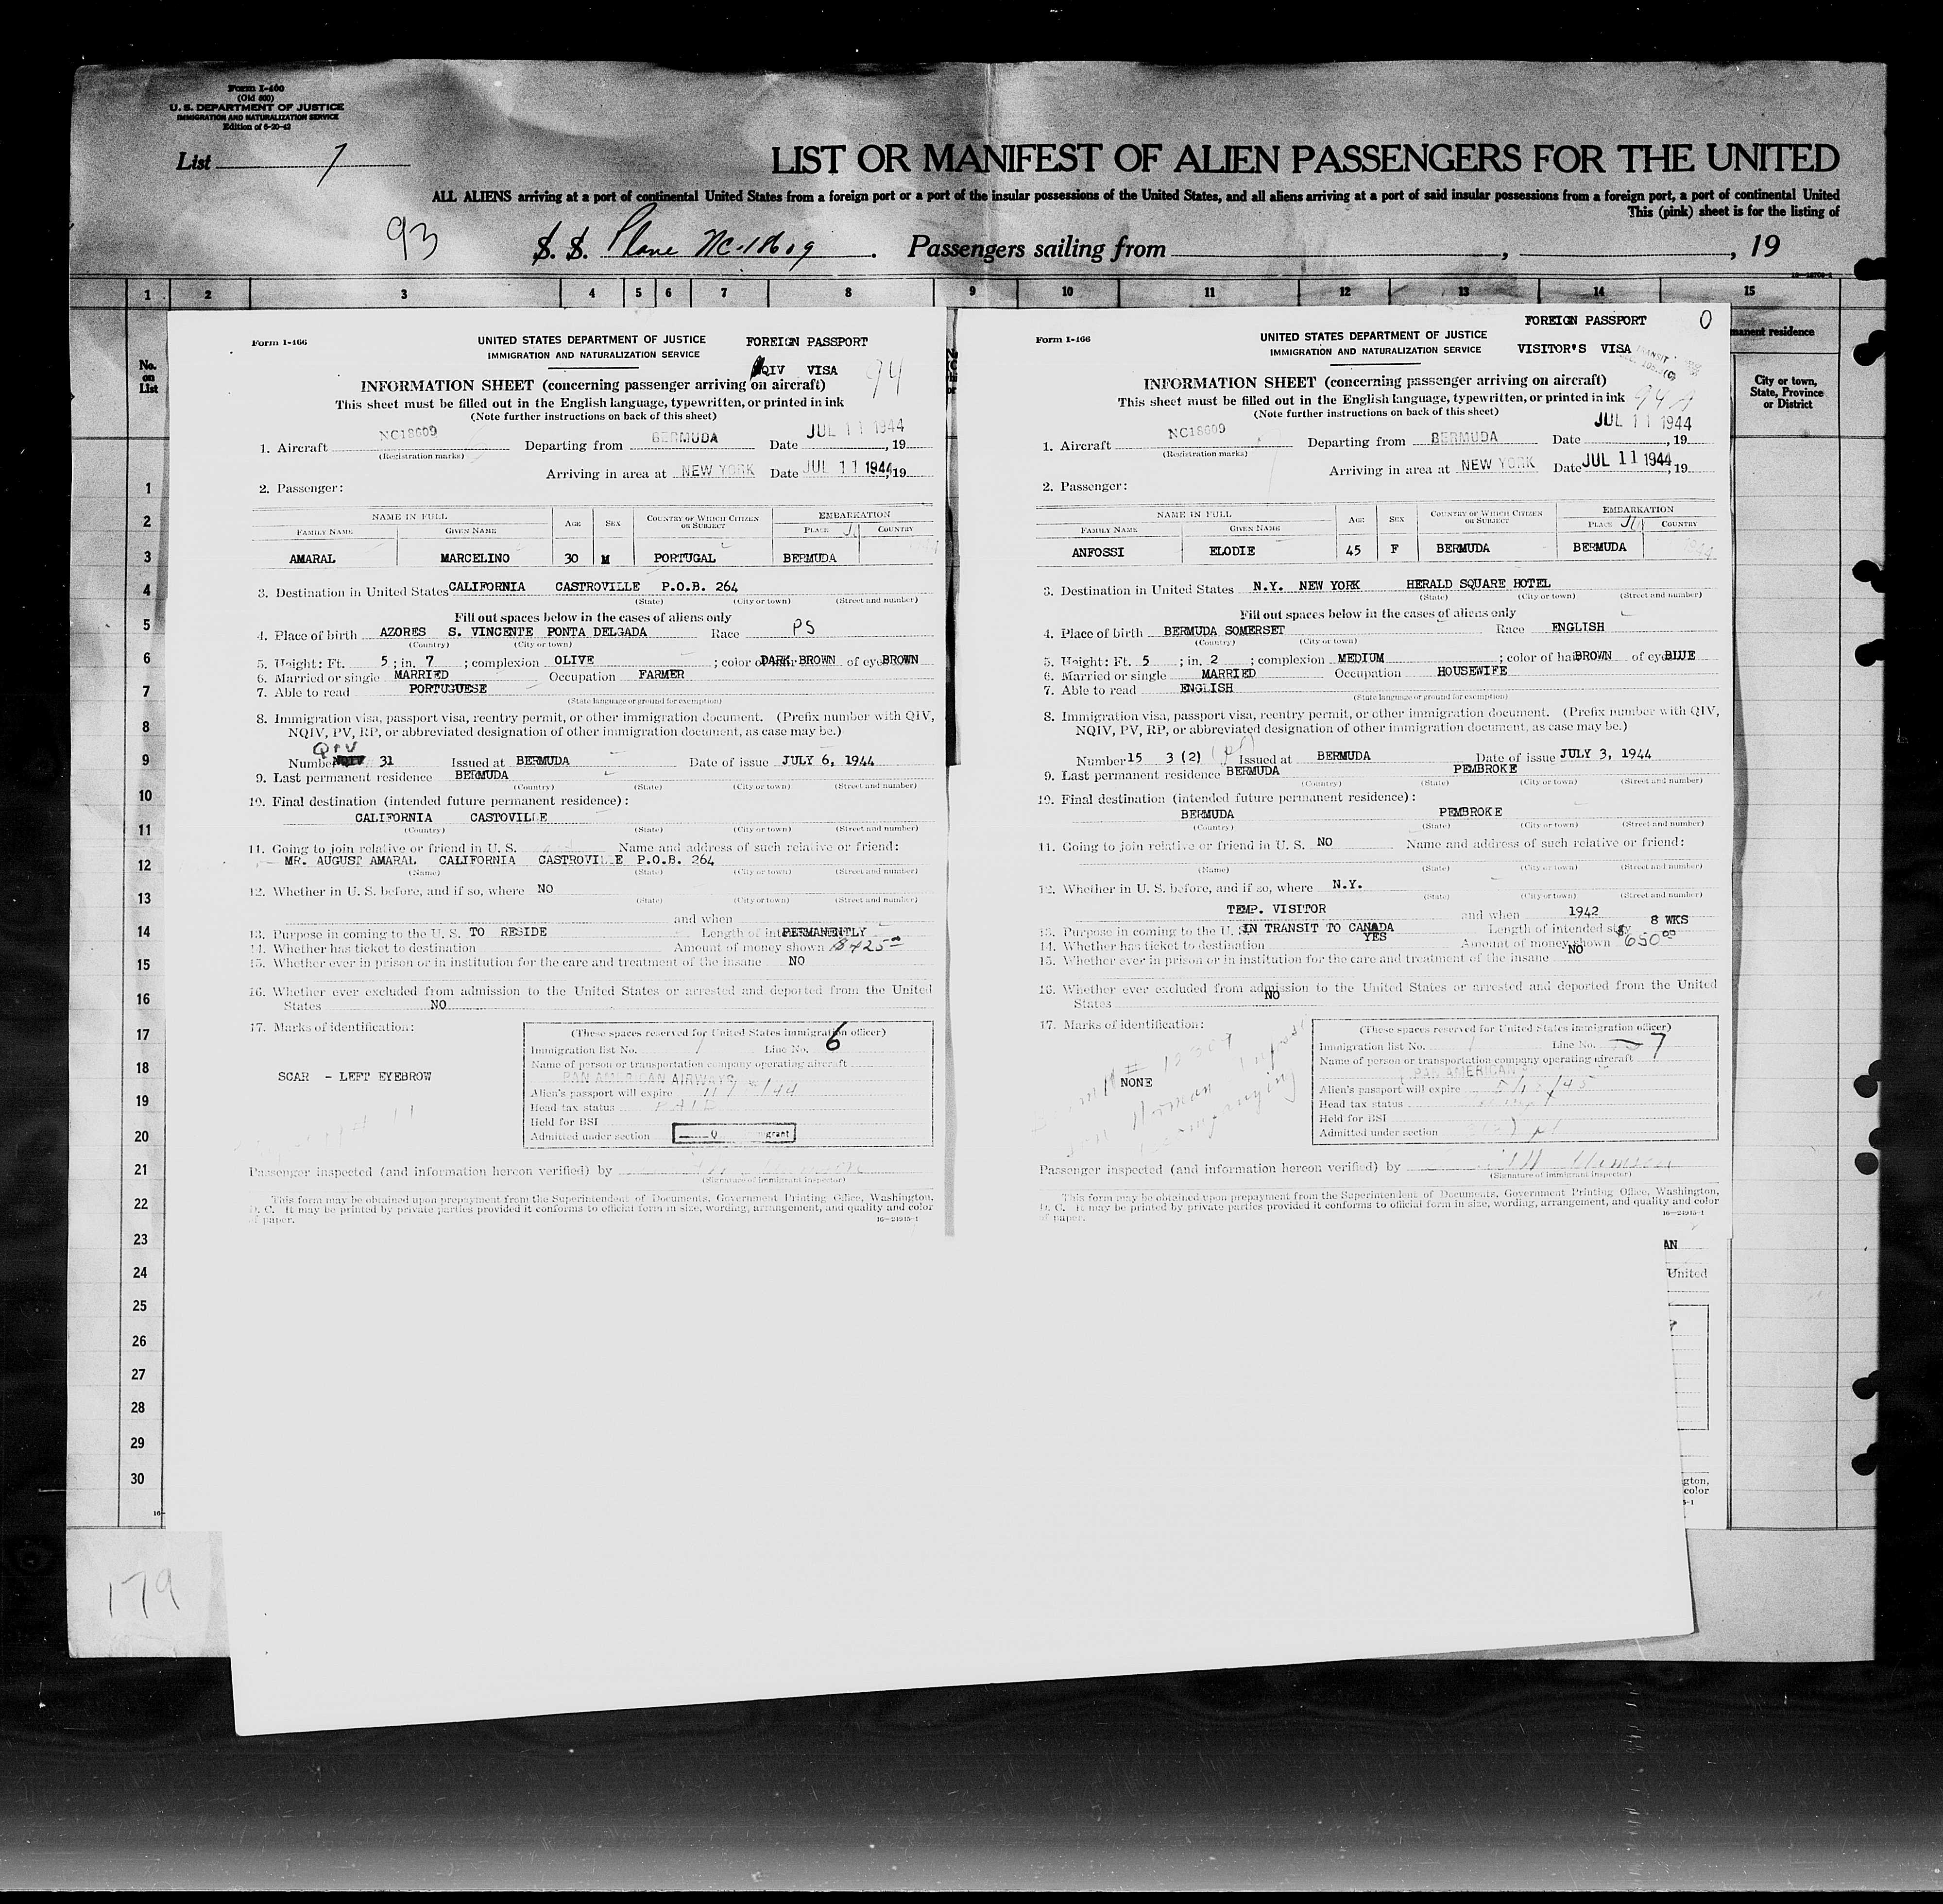 Form I-460
(Old 500)
U. S. DEPARTMENT OF JUSTICE
IMMIGRATION AND NATURALIZATION SERVICE
Edition of 6-20-42
List 7
LIST OR MANIFEST OF ALIEN PASSENGERS FOR THE UNITED
ALL ALIENS arriving at a port of continental United States from a foreign port or a port of the insular possessions of the United States, and all aliens arriving at a port of said insular possessions from a foreign port, a port of continental United
This (pink) sheet is for the listing of
93 S. S. Plane NC-18609. Passengers sailing from , , 19
1 2 3 4 5 6 7 8 9 10 11 12 13 14 15
No. on List
manent residence
City or town, State, Province or District
1
2
3
4
5
6
7
8
9
10
11
12
13
14
15
16
17
18
19
20
21
22
23
24
25
26
27
28
29
30
16-
179
Form I-466
UNITED STATES DEPARTMENT OF JUSTICE FOREIGN PASSPORT
IMMIGRATION AND NATURALIZATION SERVICE
QIV VISA 94
INFORMATION SHEET (concerning passenger arriving on aircraft)
This sheet must be filled out in the English language, typewritten, or printed in ink
(Note further instructions on back of this sheet)
1. Aircraft NC18609 Departing from BERMUDA Date JUL 11 1944, 19
(Registration marks)
Arriving in area at NEW YORK Date JUL 11 1944, 19
2. Passenger:
NAME IN FULL AGE SEX COUNTRY OF WHICH CITIZEN OR SUBJECT EMBARKATION
FAMILY NAME GIVEN NAME PLACE COUNTRY
AMARAL MARCELINO 30 M PORTUGAL BERMUDA
3. Destination in United States CALIFORNIA CASTROVILLE P.O.B. 264
(State) (City or town) (Street and number)
Fill out spaces below in the cases of aliens only
4. Place of birth AZORES S. VINCENTE PONTA DELGADA Race PS
(Country) (City or town)
5. Height: Ft. 5 ; in. 7 ; complexion OLIVE ; color of hair DARK BROWN of eyes BROWN
6. Married or single MARRIED Occupation FARMER
7. Able to read PORTUGUESE
(State language or ground for exemption)
8. Immigration visa, passport visa, reentry permit, or other immigration document. (Prefix number with QIV,
NQIV, PV, RP, or abbreviated designation of other immigration document, as case may be.)
QIV
Number NQIV 31 Issued at BERMUDA Date of issue JULY 6, 1944
9. Last permanent residence BERMUDA
(Country) (State) (City or town) (Street and number)
10. Final destination (intended future permanent residence):
CALIFORNIA CASTOVILLE
(Country) (State) (City or town) (Street and number)
11. Going to join relative or friend in U. S. Name and address of such relative or friend:
MR. AUGUST AMARAL CALIFORNIA CASTROVILLE P.O.B. 264
(Name) (State) (City or town) (Street and number)
12. Whether in U. S. before, and if so, where NO
(State) (City or town) (Street and number)
and when
13. Purpose in coming to the U. S. TO RESIDE Length of intended PERMANENTLY
14. Whether has ticket to destination Amount of money shown
15. Whether ever in prison or in institution for the care and treatment of the insane NO
16. Whether ever excluded from admission to the United States or arrested and deported from the United
States NO
17. Marks of identification:
SCAR - LEFT EYEBROW
(These spaces reserved for United States immigration officer)
Immigration list No. Line No. 6
Name of person or transportation company operating aircraft
PAN AMERICAN AIRWAYS
Alien's passport will expire
Head tax status PAID
Held for BSI
Admitted under section Q grant
Passenger inspected (and information hereon verified) by
(Signature of Immigrant Inspector)
This form may be obtained upon prepayment from the Superintendent of Documents, Government Printing Office, Washington,
D. C. It may be printed by private parties provided it conforms to official form in size, wording, arrangement, and quality and color
of paper.
16-24915-1
Form I-466
FOREIGN PASSPORT 0
UNITED STATES DEPARTMENT OF JUSTICE
IMMIGRATION AND NATURALIZATION SERVICE VISITOR'S VISA
TRANSIT
INFORMATION SHEET (concerning passenger arriving on aircraft)
This sheet must be filled out in the English language, typewritten, or printed in ink
(Note further instructions on back of this sheet)
1. Aircraft NC18609 Departing from BERMUDA Date JUL 11 1944, 19
(Registration marks)
Arriving in area at NEW YORK Date JUL 11 1944, 19
2. Passenger:
NAME IN FULL AGE SEX COUNTRY OF WHICH CITIZEN OR SUBJECT EMBARKATION
FAMILY NAME GIVEN NAME PLACE COUNTRY
ANFOSSI ELODIE 45 F BERMUDA BERMUDA
3. Destination in United States N.Y. NEW YORK HERALD SQUARE HOTEL
(State) (City or town) (Street and number)
Fill out spaces below in the cases of aliens only
4. Place of birth BERMUDA SOMERSET Race ENGLISH
(Country) (City or town)
5. Height: Ft. 5 ; in. 2 ; complexion MEDIUM ; color of hair BROWN of eyes BLUE
6. Married or single MARRIED Occupation HOUSEWIFE
7. Able to read ENGLISH
(State language or ground for exemption)
8. Immigration visa, passport visa, reentry permit, or other immigration document. (Prefix number with QIV,
NQIV, PV, RP, or abbreviated designation of other immigration document, as case may be.)
Number 15 3 (2) Issued at BERMUDA Date of issue JULY 3, 1944
9. Last permanent residence BERMUDA PEMBROKE
(Country) (State) (City or town) (Street and number)
10. Final destination (intended future permanent residence):
BERMUDA PEMBROKE
(Country) (State) (City or town) (Street and number)
11. Going to join relative or friend in U. S. NO Name and address of such relative or friend:
(Name) (State) (City or town) (Street and number)
12. Whether in U. S. before, and if so, where N.Y.
(State) (City or town) (Street and number)
TEMP. VISITOR and when 1942
13. Purpose in coming to the U. S. IN TRANSIT TO CANADA Length of intended stay 8 WKS
14. Whether has ticket to destination YES Amount of money shown $650.00
15. Whether ever in prison or in institution for the care and treatment of the insane NO
16. Whether ever excluded from admission to the United States or arrested and deported from the United
States NO
17. Marks of identification:
NONE
accompanying
(These spaces reserved for United States immigration officer)
Immigration list No. Line No. 7
Name of person or transportation company operating aircraft
PAN AMERICAN
Alien's passport will expire
Head tax status
Held for BSI
Admitted under section
Passenger inspected (and information hereon verified) by
(Signature of Immigrant Inspector)
This form may be obtained upon prepayment from the Superintendent of Documents, Government Printing Office, Washington,
D. C. It may be printed by private parties provided it conforms to official form in size, wording, arrangement, and quality and color
of paper.
16-24915-1
AN
United
gton,
color
5-1